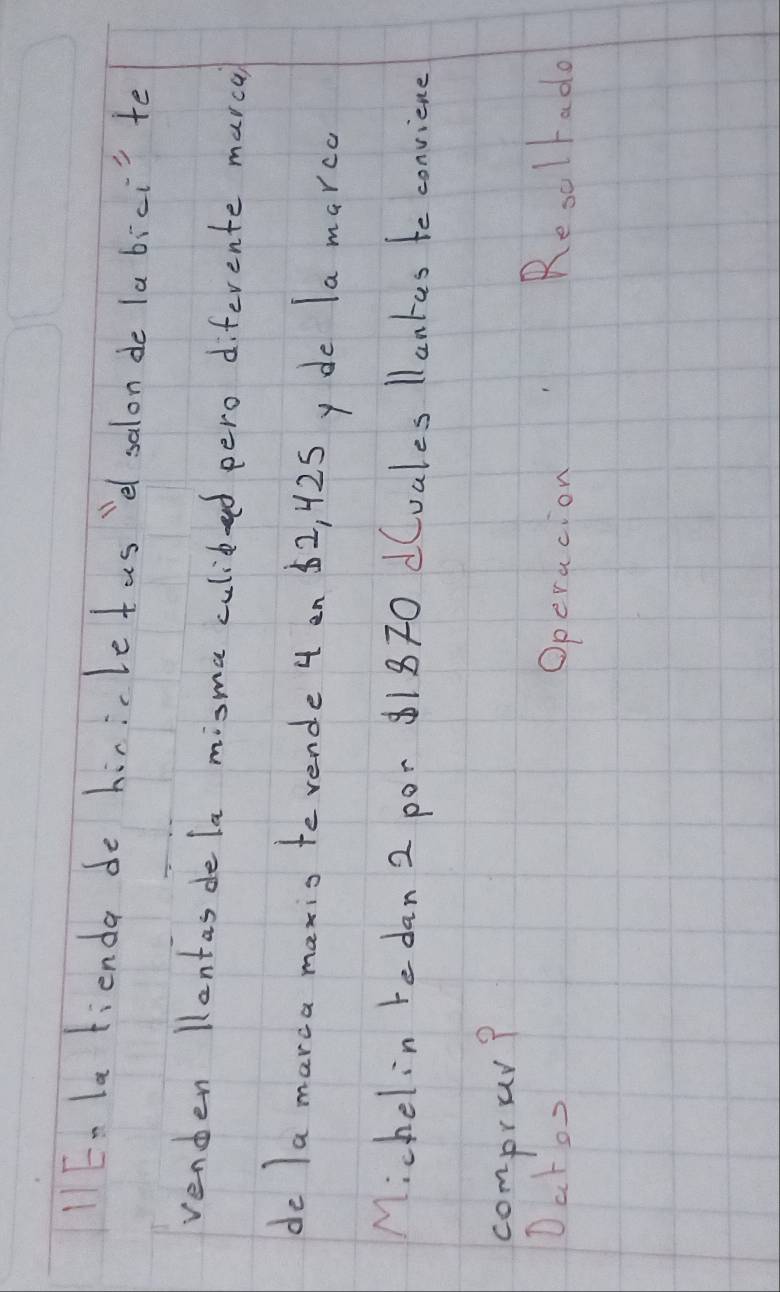 11 En la tienda de hinicletas "el salon de la bici" te
venden llantas de la misma calidad pero diferente marca,
de la marca maxis te vende 4 en $2,425 y de la marca
Michelin te dan 2 por $1870 ¿Cuales llantas te conviene
comprar?
Datos Operacion Resultado